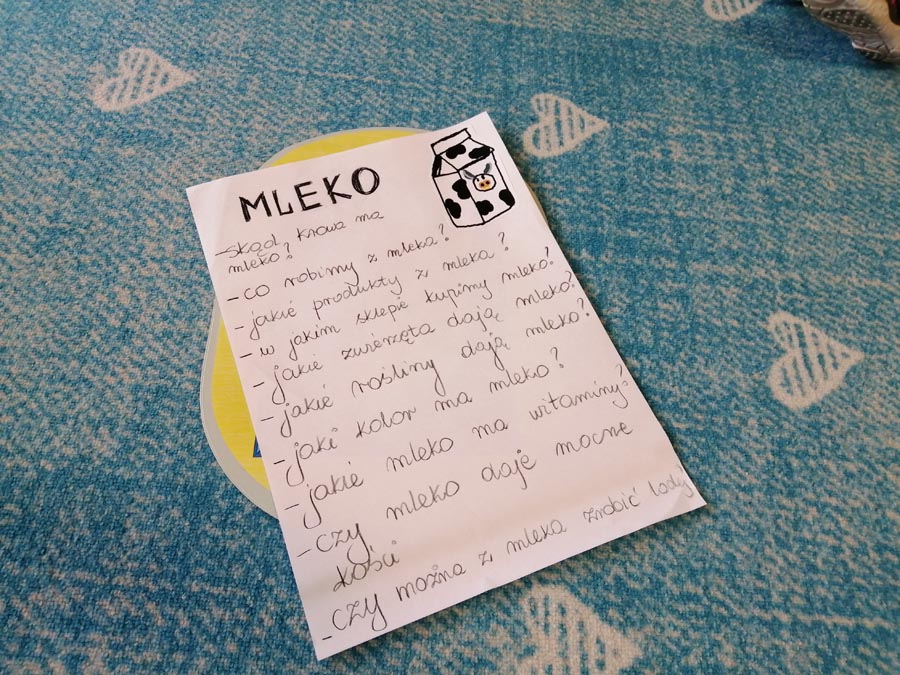 MLEKO
- skąd krowa ma
mleko?
- co robimy z mleka?
- jakie produkty z mleka?
- w jakim sklepie kupimy mleko?
- jakie zwierzęta dają mleko?
- jakie rośliny dają mleko?
- jaki kolor ma mleko?
- jakie mleko ma witaminy?
- czy mleko daje mocne
kości
- czy można z mleka zrobić lody